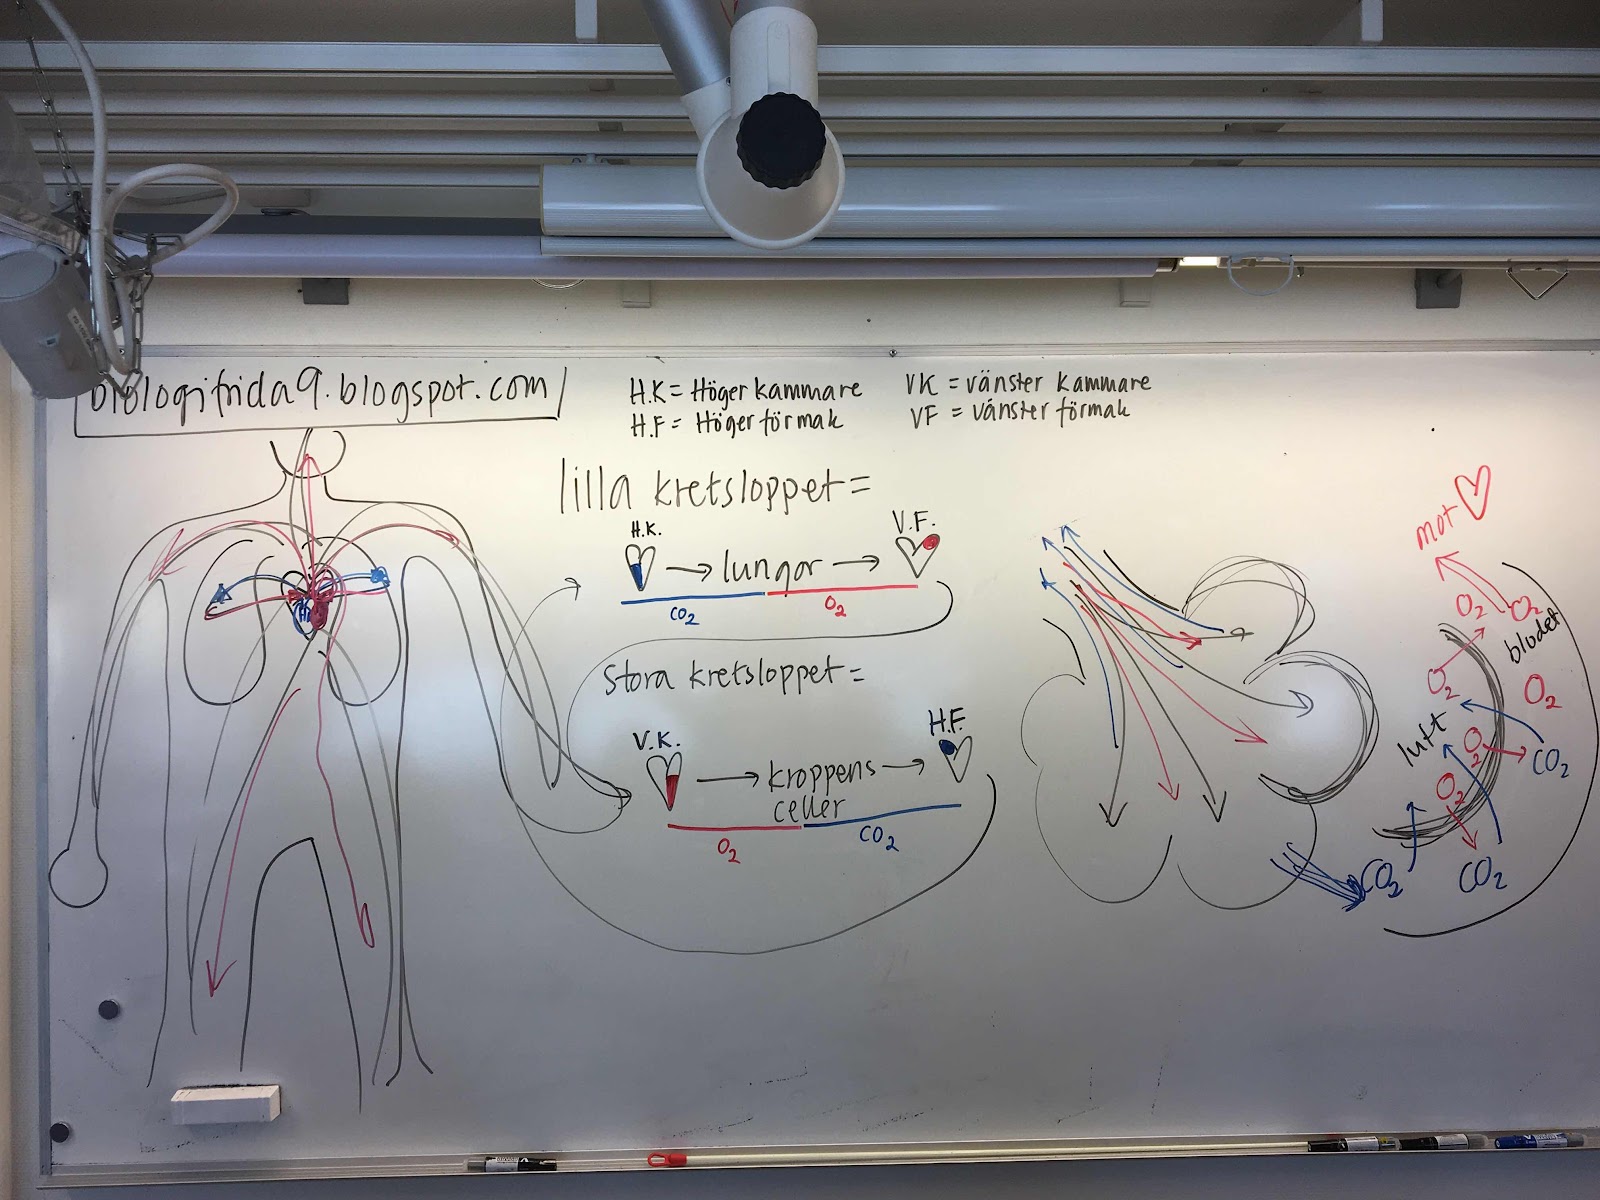 biologifrida9.blogspot.com/
H.K = Höger kammare
H.F = Höger förmak
VK = vänster kammare
VF = vänster förmak
lilla kretsloppet =
H.K. → lungor → V.F.
CO2 O2
stora kretsloppet =
V.K. → kroppens celler → H.F.
O2 CO2
mot
O2 O2
blodet
O2 O2
luft
O2 CO2
O2
CO2 CO2